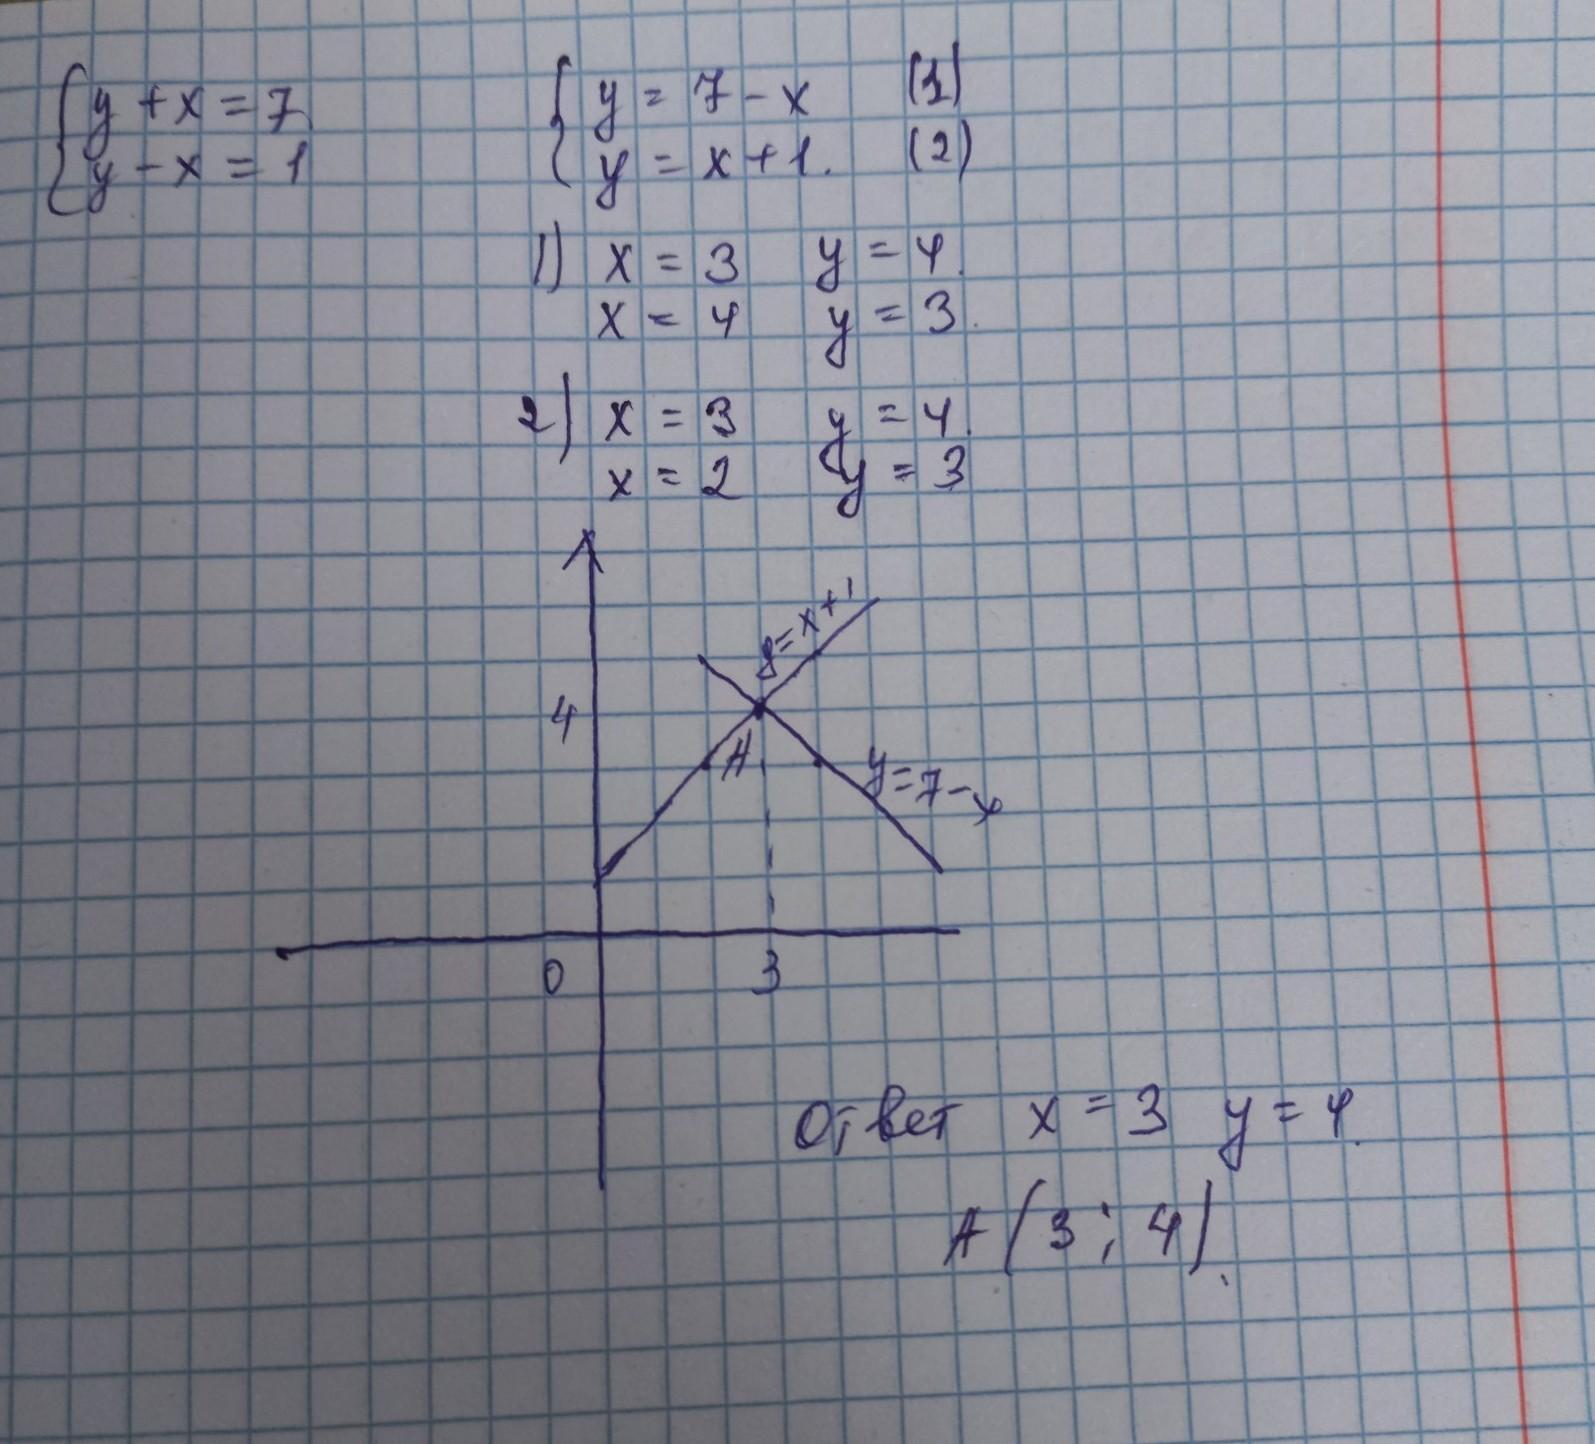 { y + x = 7
y - x = 1
{ y = 7 - x (1)
y = x + 1. (2)
1) x = 3 y = 4.
x = 4 y = 3.
2) x = 3 y = 4.
x = 2 y = 3
y = x + 1
4
A
y = 7 - x
0 3
Ответ x = 3 y = 4.
A (3 ; 4).